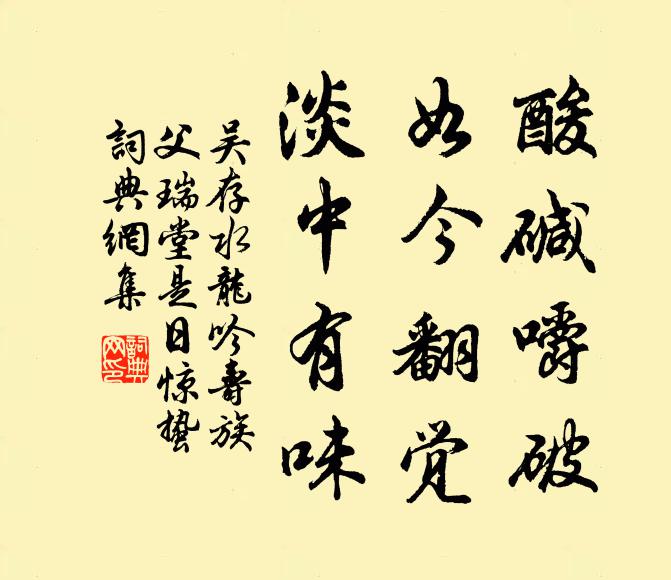 酸碱嚼破
如今翻觉
淡中有味
吴存水龍吟壽族
父瑞堂是日惊蛰
詞典網集
詞典
网印